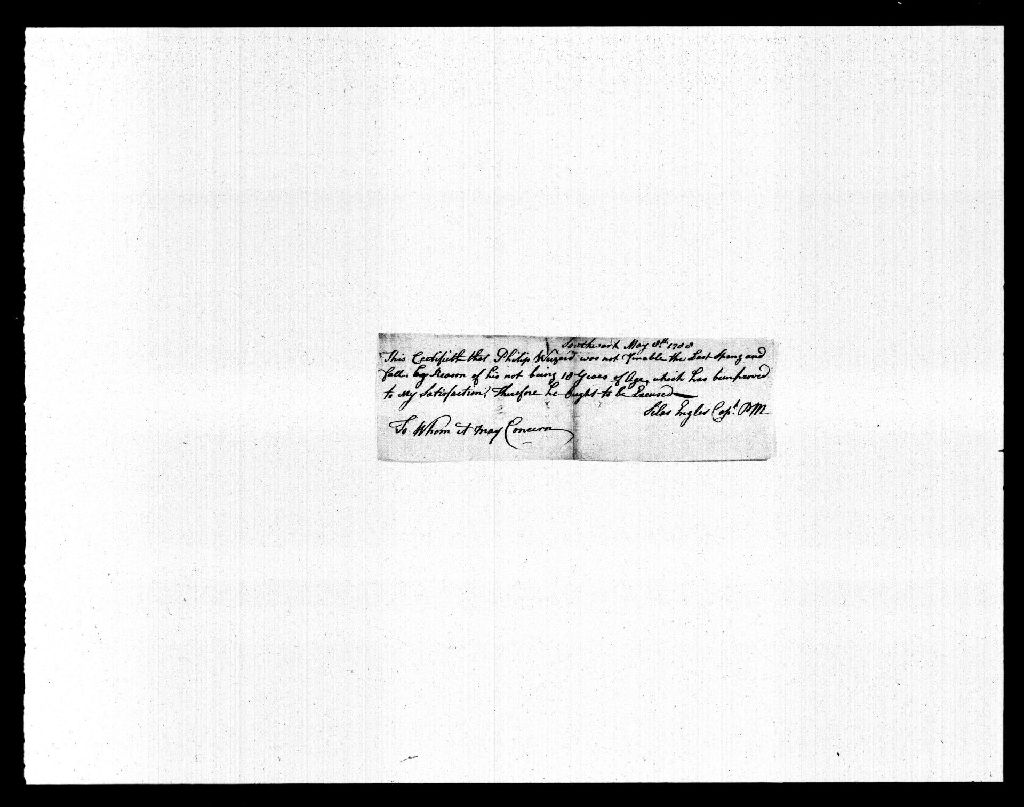 Southwark May 8th 1788
This Certifieth that Philip was not Finable the Last Spring and
fall by Reason of his not being 18 Years of Age, which has been proved
to My Satisfaction, Therefore he Ought to be Excused
Silas Engles Capt. P.M.
To Whom it may Concern